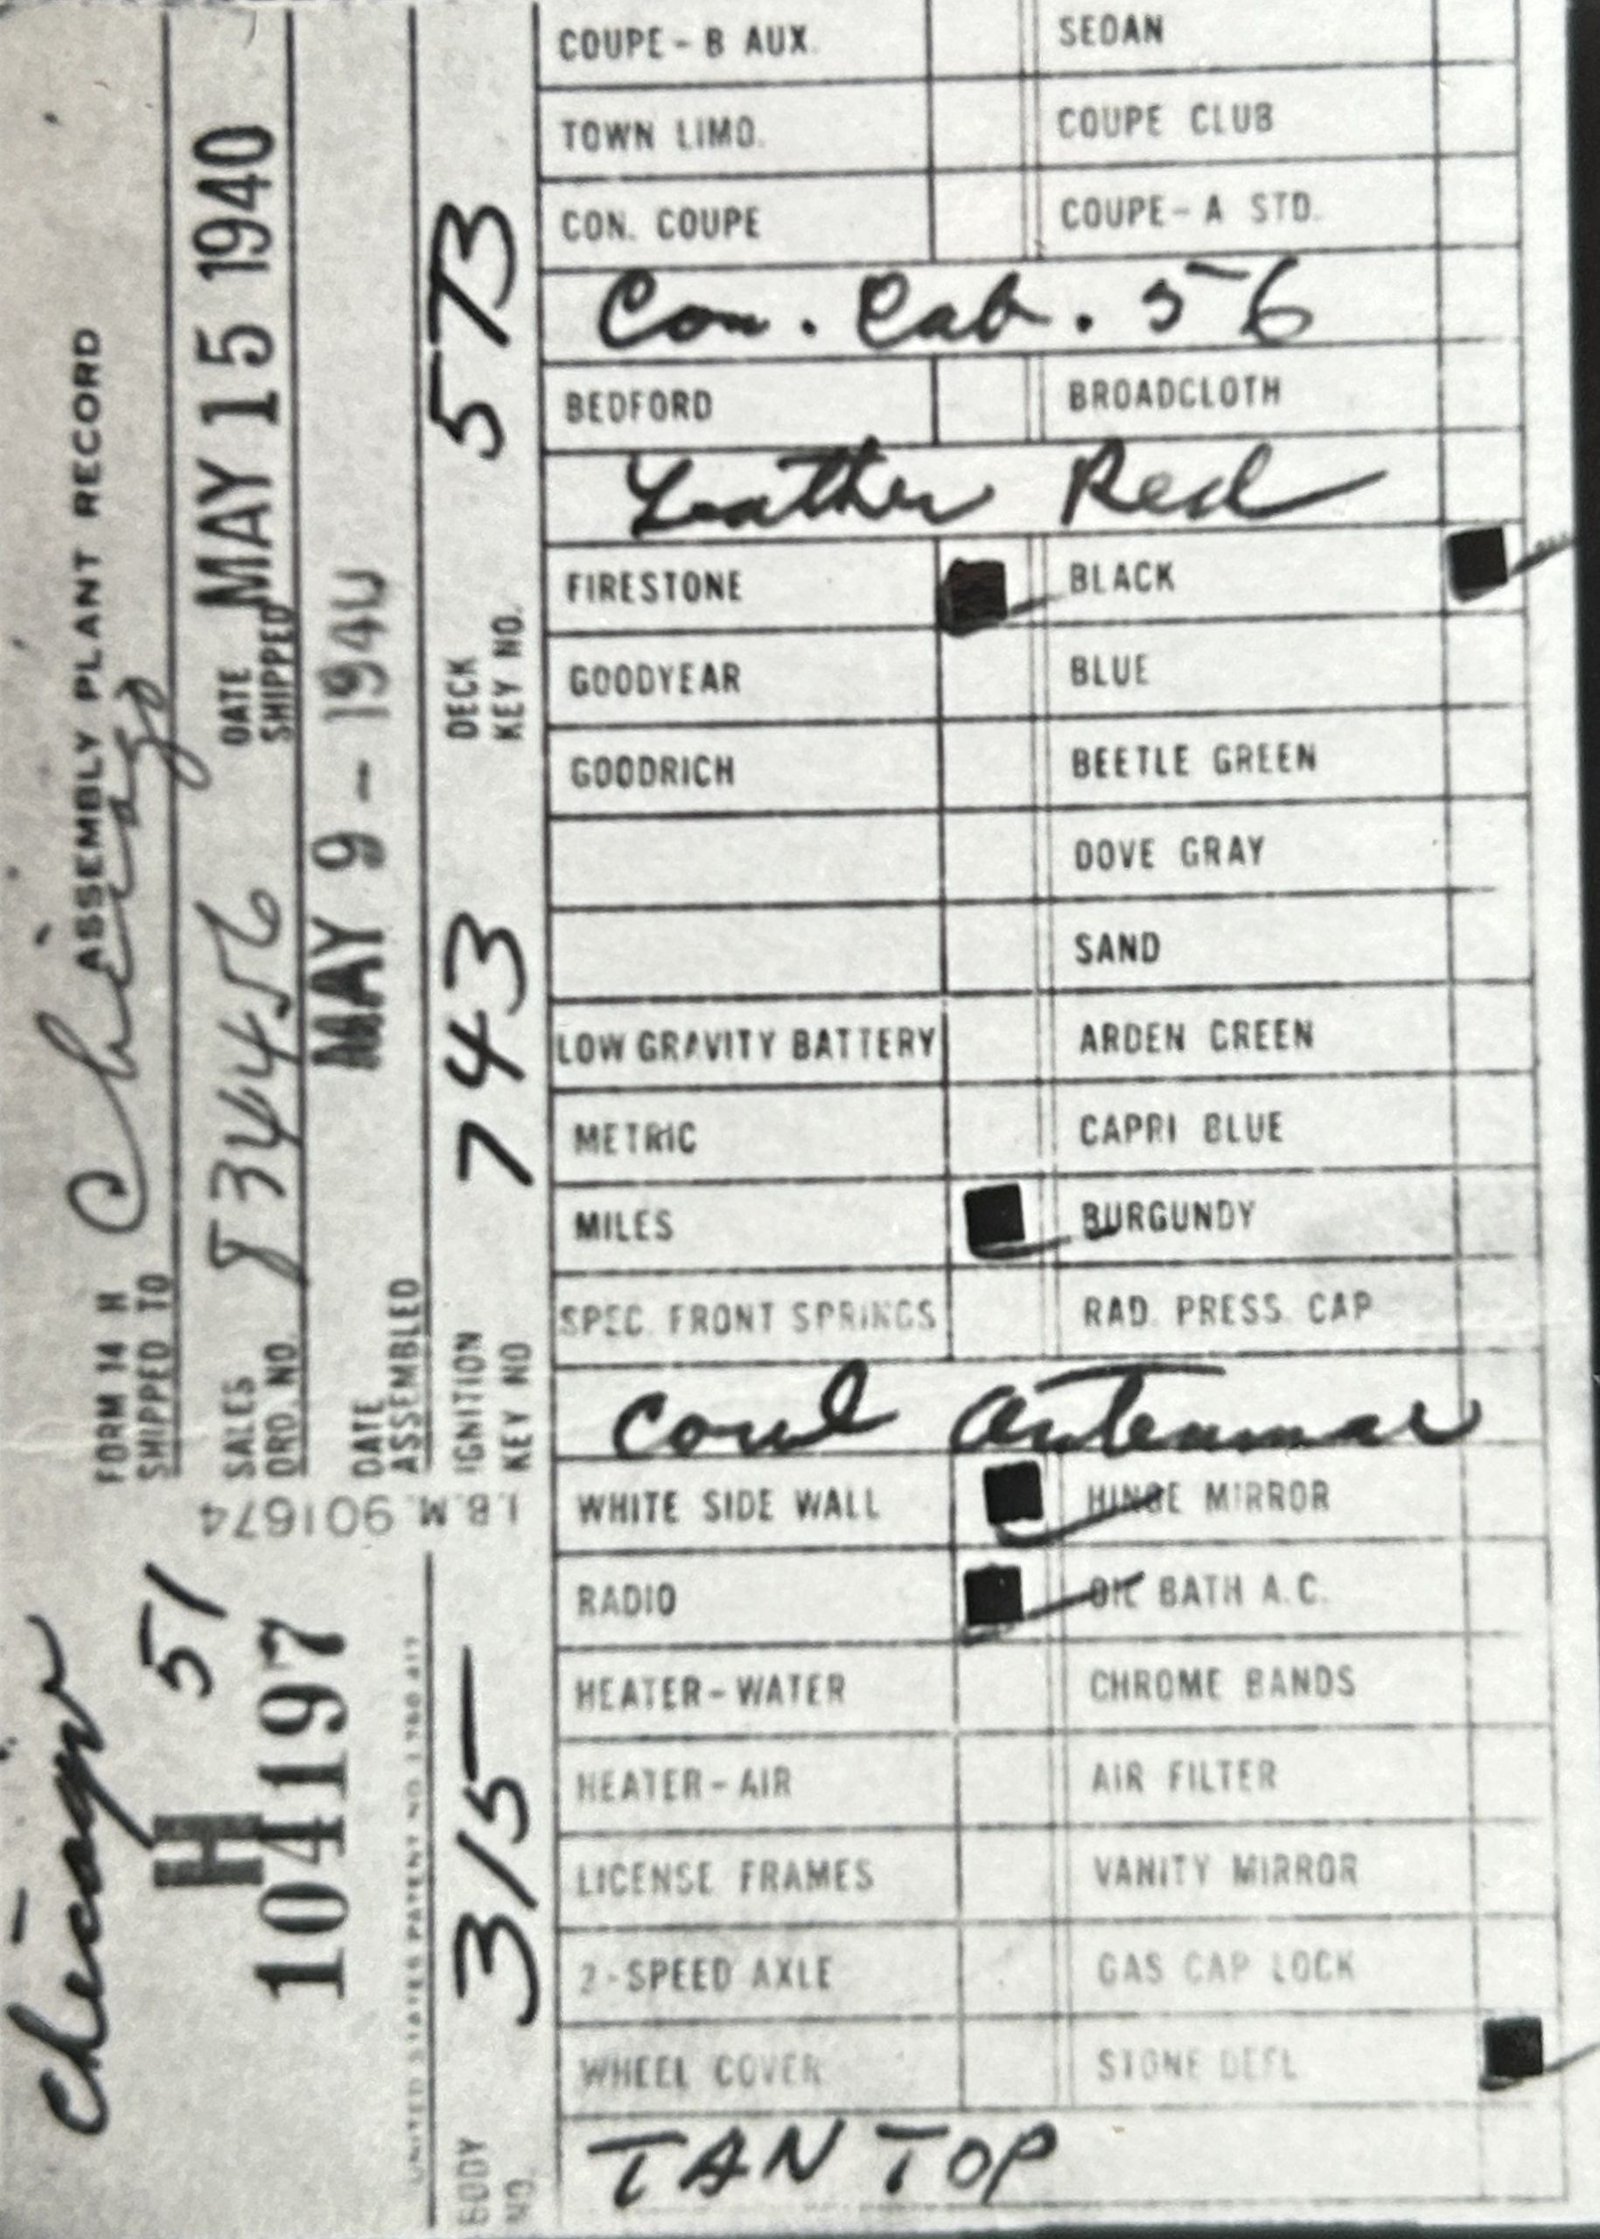 Chicago
51
H
104197
UNITED STATES PATENT NO. 1,780,417
BODY NO. 315
FORM 14 H ASSEMBLY PLANT RECORD
SHIPPED TO Chicago
SALES ORD. NO. 834456 DATE SHIPPED MAY 15 1940
DATE ASSEMBLED MAY 9 - 1940
IGNITION KEY NO 743 DECK KEY NO. 573
I.B.M. 901674
COUPE - B AUX. SEDAN
TOWN LIMO. COUPE CLUB
CON. COUPE COUPE - A STD.
Con. Cab. 56
BEDFORD BROADCLOTH
Leather Red
FIRESTONE BLACK
GOODYEAR BLUE
GOODRICH BEETLE GREEN
DOVE GRAY
SAND
LOW GRAVITY BATTERY ARDEN GREEN
METRIC CAPRI BLUE
MILES BURGUNDY
SPEC. FRONT SPRINGS RAD. PRESS. CAP
Cowl Antennae
WHITE SIDE WALL HINGE MIRROR
RADIO OIL BATH A.C.
HEATER - WATER CHROME BANDS
HEATER - AIR AIR FILTER
LICENSE FRAMES VANITY MIRROR
2 - SPEED AXLE GAS CAP LOCK
WHEEL COVER STONE DEFL.
TAN TOP